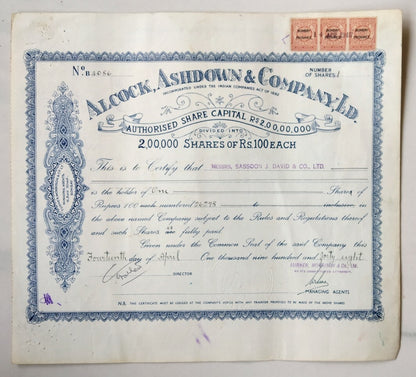 No. B 4056
NUMBER OF SHARES 1
ALCOCK, ASHDOWN & COMPANY, LD.
INCORPORATED UNDER THE INDIAN COMPANIES ACT OF 1882
AUTHORISED SHARE CAPITAL RS 2,00,00,000
DIVIDED INTO
2,00,000 SHARES OF RS. 100 EACH
This is to Certify that MESSRS. SASSOON J. DAVID & CO., LTD.
is the holder of One Shares of
Rupees 100 each numbered to inclusive, in
the above named Company subject to the Rules and Regulations thereof
and such Shares are fully paid.
Given under the Common Seal of the said Company this
Fourteenth day of April One thousand nine hundred and forty eight
DIRECTOR
MANAGING AGENTS
N.B. THIS CERTIFICATE MUST BE LODGED AT THE COMPANY'S OFFICE WITH ANY TRANSFER PROPOSED TO BE MADE OF THE ABOVE SHARES